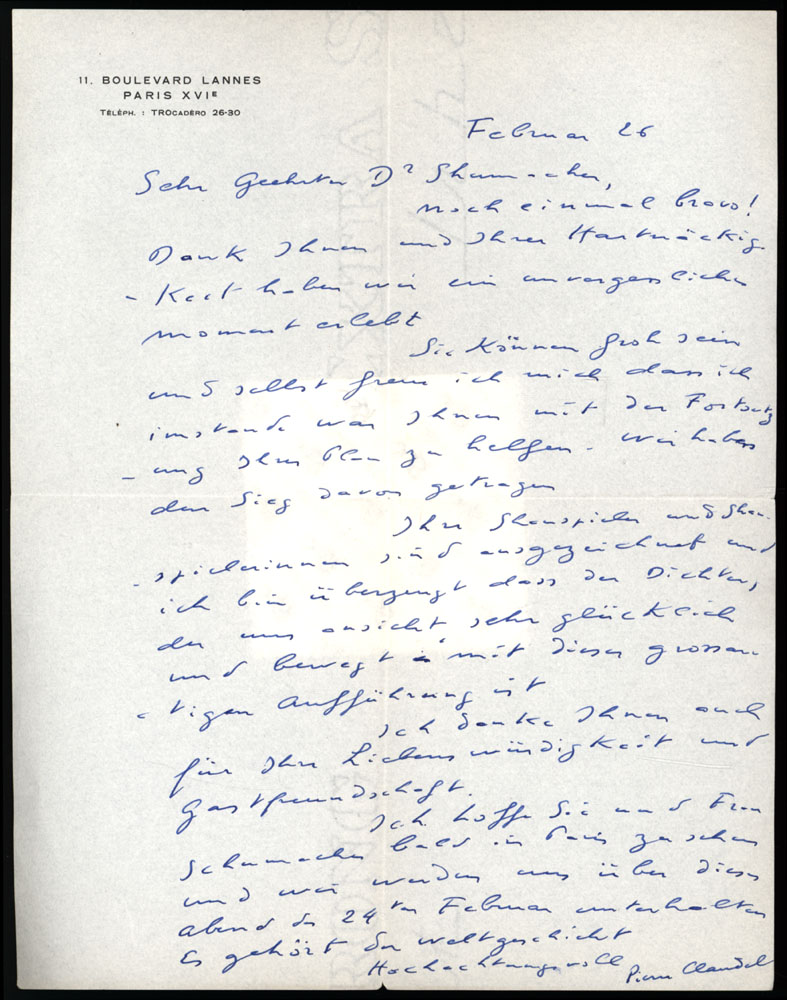 11. BOULEVARD LANNES
PARIS XVIE
TÉLÉPH. : TROCADÉRO 26-30
Februar 26
Sehr Geehrter Dr Shumacher,
noch einmal bravo!
Dank Ihnen und Ihrer Hartnäckig
-keit haben wir ein unvergessliches
moment erlebt
Sie können froh sein
und selbst freue ich mich dass ich
imstande war Ihnen mit der Fortsetz
-ung Ihres Plan zu helfen. Wir haben
den Sieg davon getragen
Ihre Shauspieler und Shau-
-spielerinnen sind ausgezeichnet und
ich bin überzeugt dass der Dichter,
der uns ansieht, sehr glücklich
und bewegt mit dieser grossar-
-tigen Aufführung ist
Ich danke Ihnen auch
für Ihre Liebenswürdigkeit und
Gastfreundschaft.
Ich hoffe Sie und Frau
Schumacher bald in Paris zu sehen
und wir werden uns über diesen
abend des 24ten Februar unterhalten
Es gehört der Weltgeschicht
Hochachtungsvoll Pierre Claudel